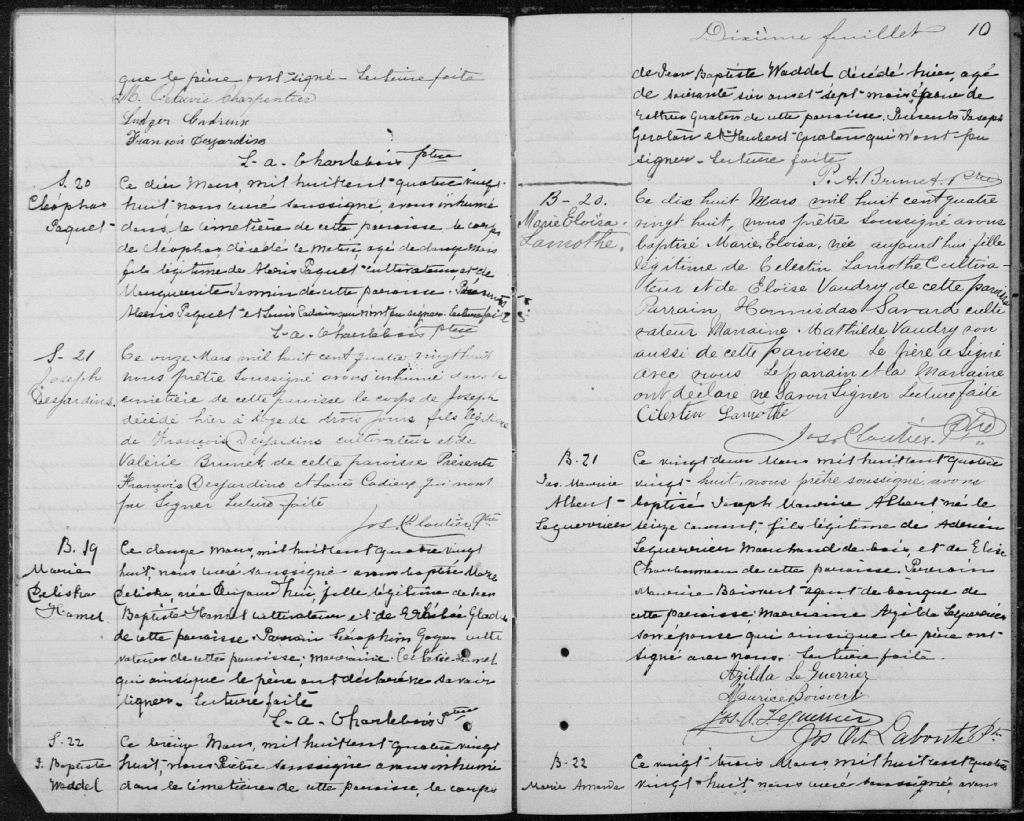 que le père ont signé - Lecture faite
M. Octavie Charpentier
Ludger Cadieux
François Desjardins
L-a-Charlebois ptre
S. 20
Cléophas
Paquet
Ce dix Mars, mil huit cent quatre vingt
huit nous curé soussigné, avons inhumé
dans le cimetière de cette paroisse le corps
de Cléophas, décédé le agé de mois
fils légitime de Alexis Paquet cultivateur et de
Marguerite Jasmin de cette paroisse. Présents
Alexis Paquet et Louis Cadieux qui n'ont pu signer. Lecture faite
L-a-Charlebois ptre
S-21
Joseph
Desjardins
Ce onze Mars mil huit cent quatre vingt huit
nous prêtre soussigné avons inhumé dans le
cimetière de cette paroisse le corps de Joseph
décédé hier à l'age de trois jours fils légitime
de François Desjardins cultivateur et de
Valérie Brunet de cette paroisse Présents
François Desjardins et Louis Cadieux qui n'ont
pu Signer Lecture faite
Jos Cloutier Ptre
B. 19
Marie
Deliska
Hamel
Ce douze Mars, mil huit cent quatre vingt
huit, nous curé soussigné avons baptisé Marie
Deliska, née aujourd'hui, fille légitime de Jean
Baptiste Hamel cultivateur et de
de cette paroisse. Parrain Séraphin Goyer culti
vateur de cette paroisse; marraine. Hamel
qui ainsi que le père ont déclaré ne savoir
signer. Lecture faite
L-a-Charlebois Ptre
S-22
J. Baptiste
Waddel
Ce treize Mars, mil huit cent quatre vingt
huit, nous Prêtre soussigné avons inhumé
dans le cimetière de cette paroisse, le corps
Dixième feuillet 10
de Jean Baptiste Waddel décédé hier, agé
de soixante six ans et sept mois époux de
Esther Quraton de cette paroisse. Présents Joseph
Quraton et Hubert Quraton qui n'ont pu
signer - Lecture faite
P. A. Brunet. Ptre
B-20.
Marie Eloïsa
Lamothe.
Ce dix huit Mars mil huit cent quatre
vingt huit, nous prêtre soussigné avons
baptisé Marie, Eloïsa, née aujourd'hui fille
légitime de Celestin Lamothe Cultiva-
teur et de Eloïse Vaudry de cette paroisse
Parrain Hormisdas Savard culti
vateur Marraine Mathilde Vaudry son
aussi de cette paroisse Le père a Signé
avec nous Le parrain et la Marraine
ont déclaré ne Savoir Signer Lecture faite
Célestin Lamothe
Jos Cloutier. Ptre
B-21
Jos. Maurice
Albert
Leguerrier
Ce vingt deux Mars mil huit cent quatre
vingt-huit, nous prêtre soussigné, avons
baptisé Joseph Maurice Albert né le
seize courant, fils légitime de Adonias
Leguerrier Marchand de bois, et de Elise
Charbonneau de cette paroisse. Parrain
Maurice Boisvert agent de banque de
cette paroisse; marraine Azilda Leguerrier
son épouse qui ainsi que le père ont
signé avec nous. Lecture faite.
Azilda Le Guerrier
Maurice Boisvert
Jos. A. Leguerrier
Jos Labonté Ptr.
B-22
Marie Amanda
Ce vingt trois Mars mil huit cent quatre
vingt-huit, nous curé soussigné, avons